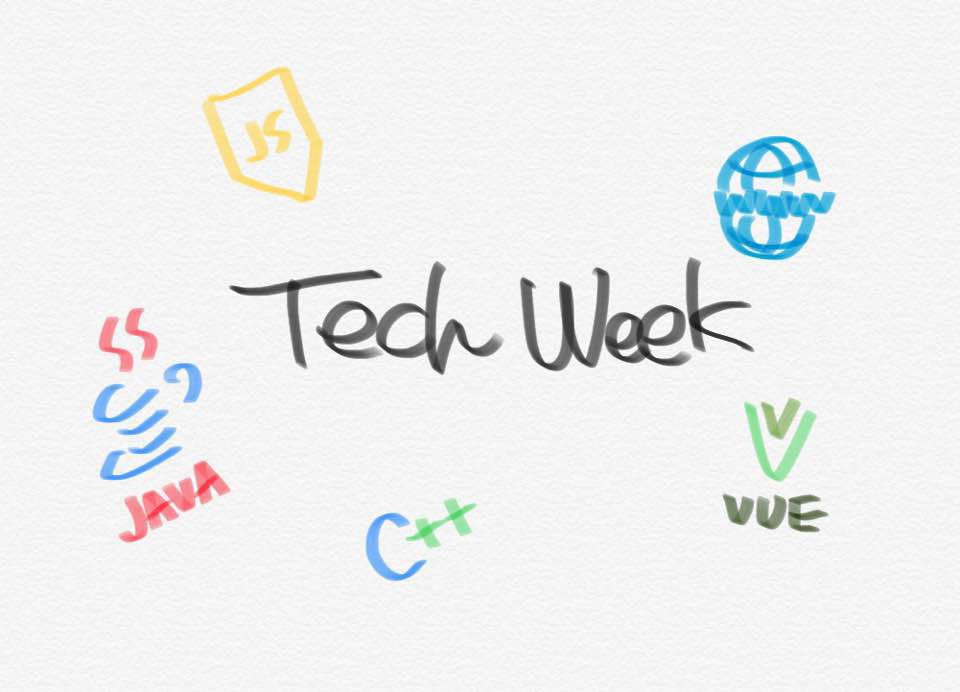 JS
WWW
Tech Week
JAVA
V
VUE
C++